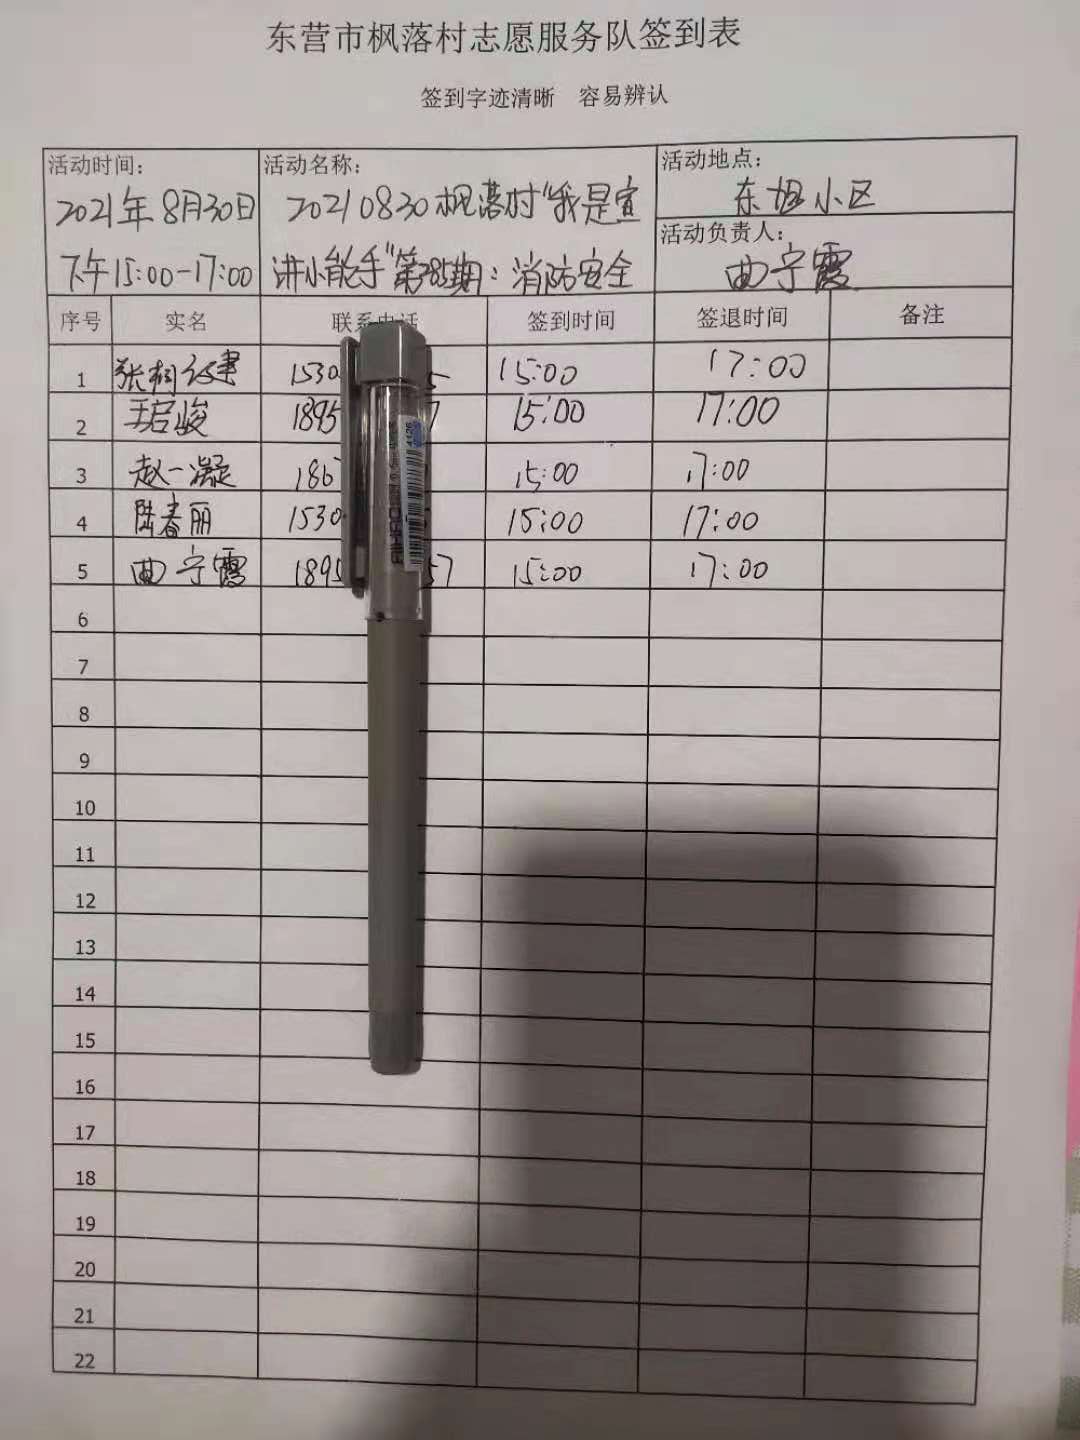 东营市枫落村志愿服务队签到表
签到字迹清晰 容易辨认
活动时间: 活动名称: 活动地点:
2021年8月30日 20210830枫落村"我是宣 东旭小区
活动负责人:
下午15:00-17:00 讲小能手"第385期:消防安全 曲宁霞
序号 实名 联系电话 签到时间 签退时间 备注
1 张栩 1530 5 15:00 17:00
2 王启骏 1895 7 15:00 17:00
3 赵一凝 186 15:00 17:00
4 陆春丽 1530 15:00 17:00
5 曲宁霞 1895 57 15:00 17:00
6
7
8
9
10
11
12
13
14
15
16
17
18
19
20
21
22